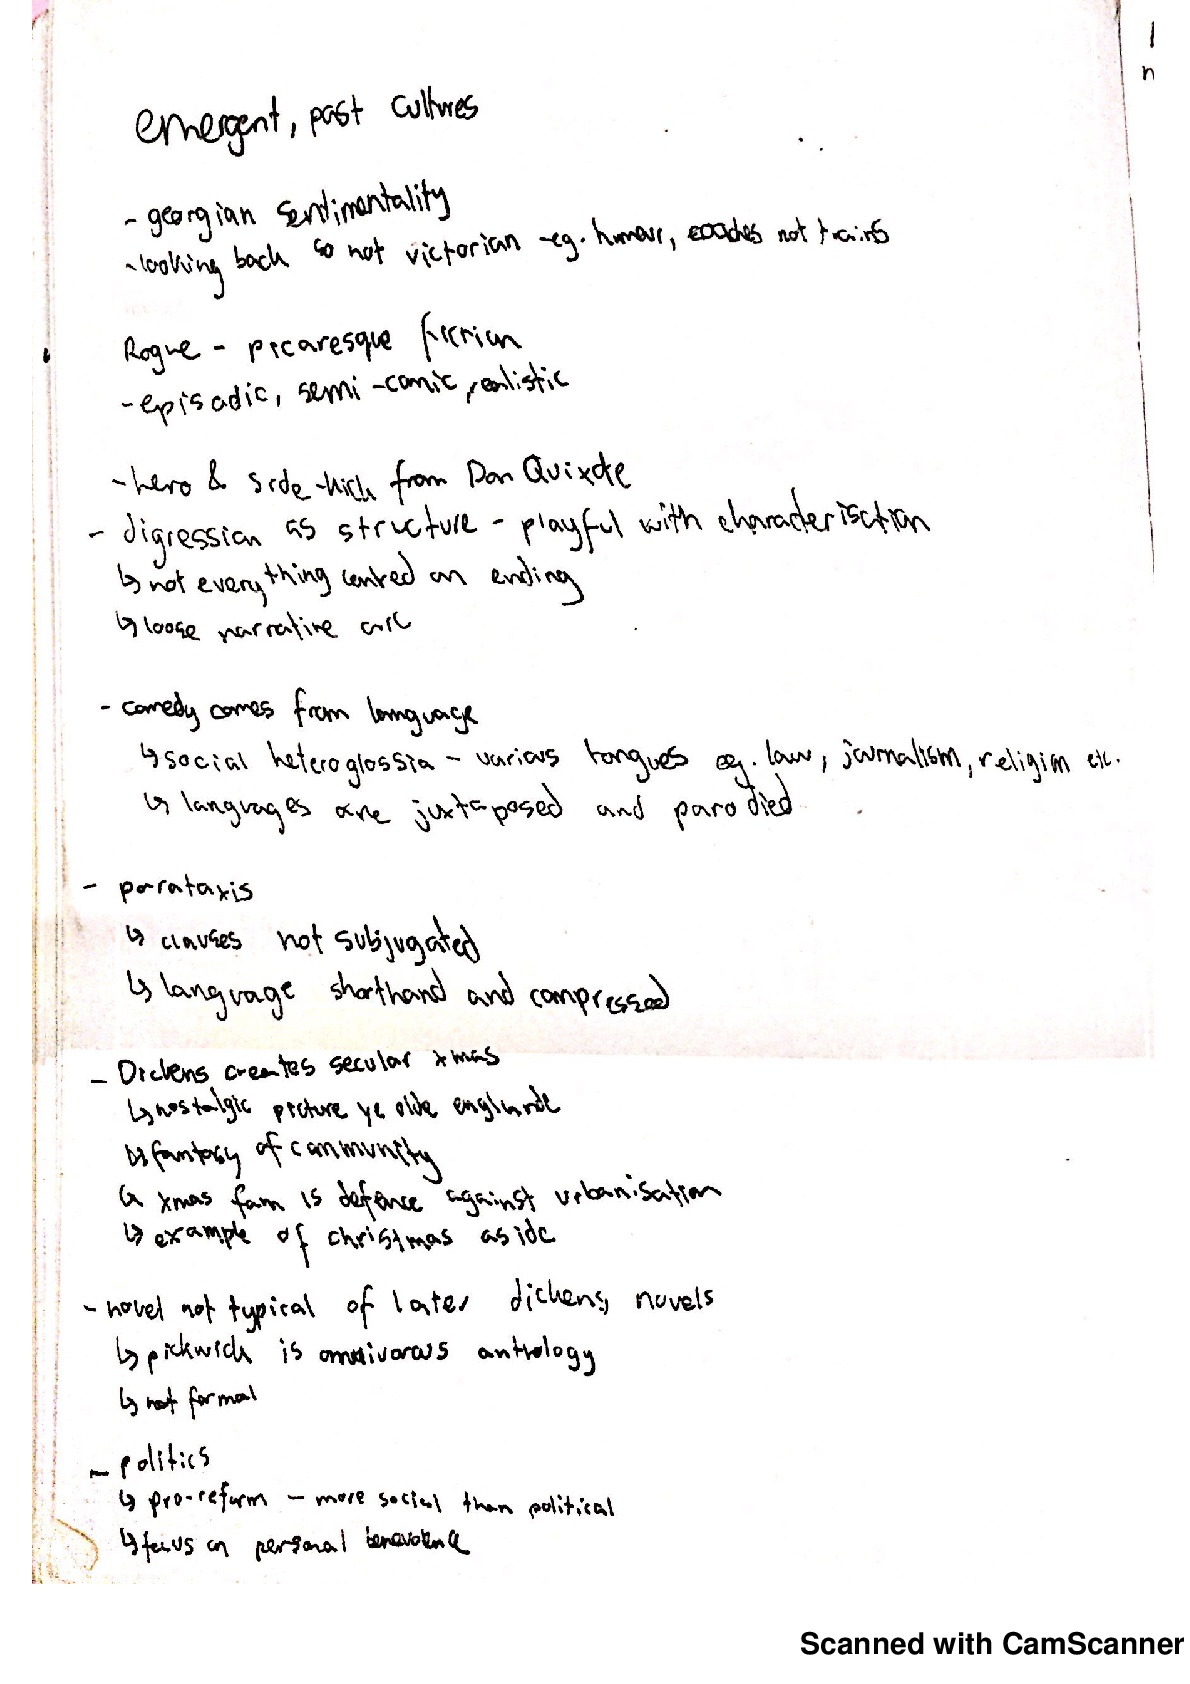 emergent, past cultures
- georgian sentimentality
- looking back so not victorian - eg. humour, coaches not trains
Rogue - picaresque fiction
- episodic, semi-comic, realistic
- hero & side-kick from Don Quixote
- digression as structure - playful with characterisation
↳ not everything centred on ending
↳ loose narrative arc
- comedy comes from language
↳ social heteroglossia - various tongues eg. law, journalism, religion etc.
↳ languages are juxtaposed and parodied
- parataxis
↳ clauses not subjugated
↳ language shorthand and compressed
- Dickens creates secular xmas
↳ nostalgic picture ye olde englande
↳ fantasy of community
↳ xmas fam is defence against urbanisation
↳ example of christmas aside
- novel not typical of later dickens novels
↳ pickwick is omnivorous anthology
↳ not formal
- politics
↳ pro-reform - more social than political
↳ focus on personal benevolence
Scanned with CamScanner